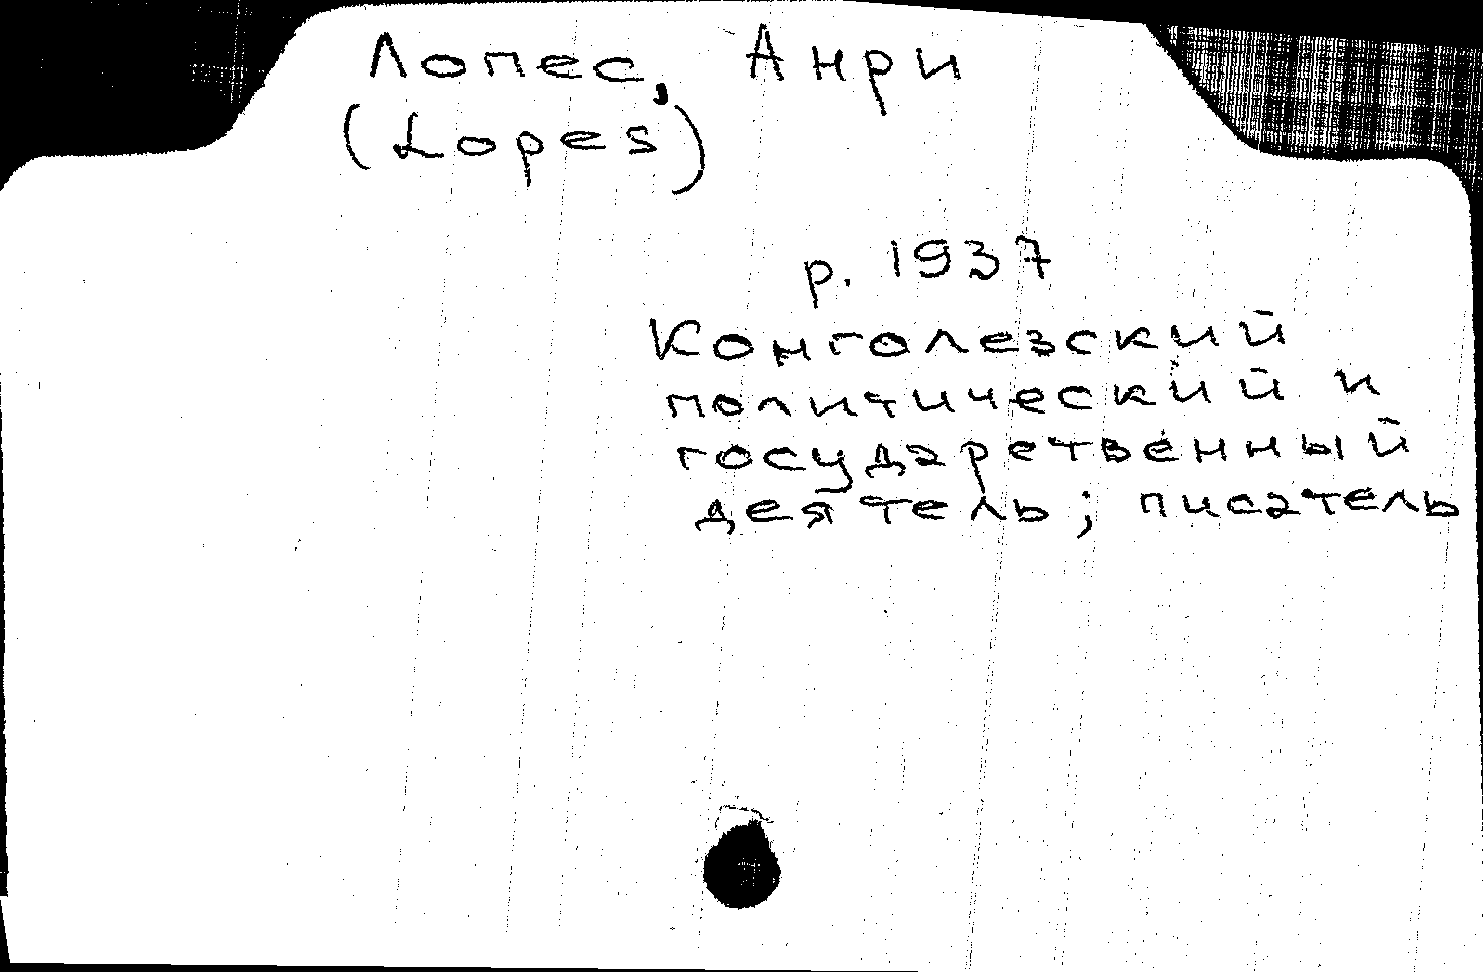 Лопес, Анри
(Lopes)
р. 1937
Конголезский
политический и
государственный
деятель; писатель